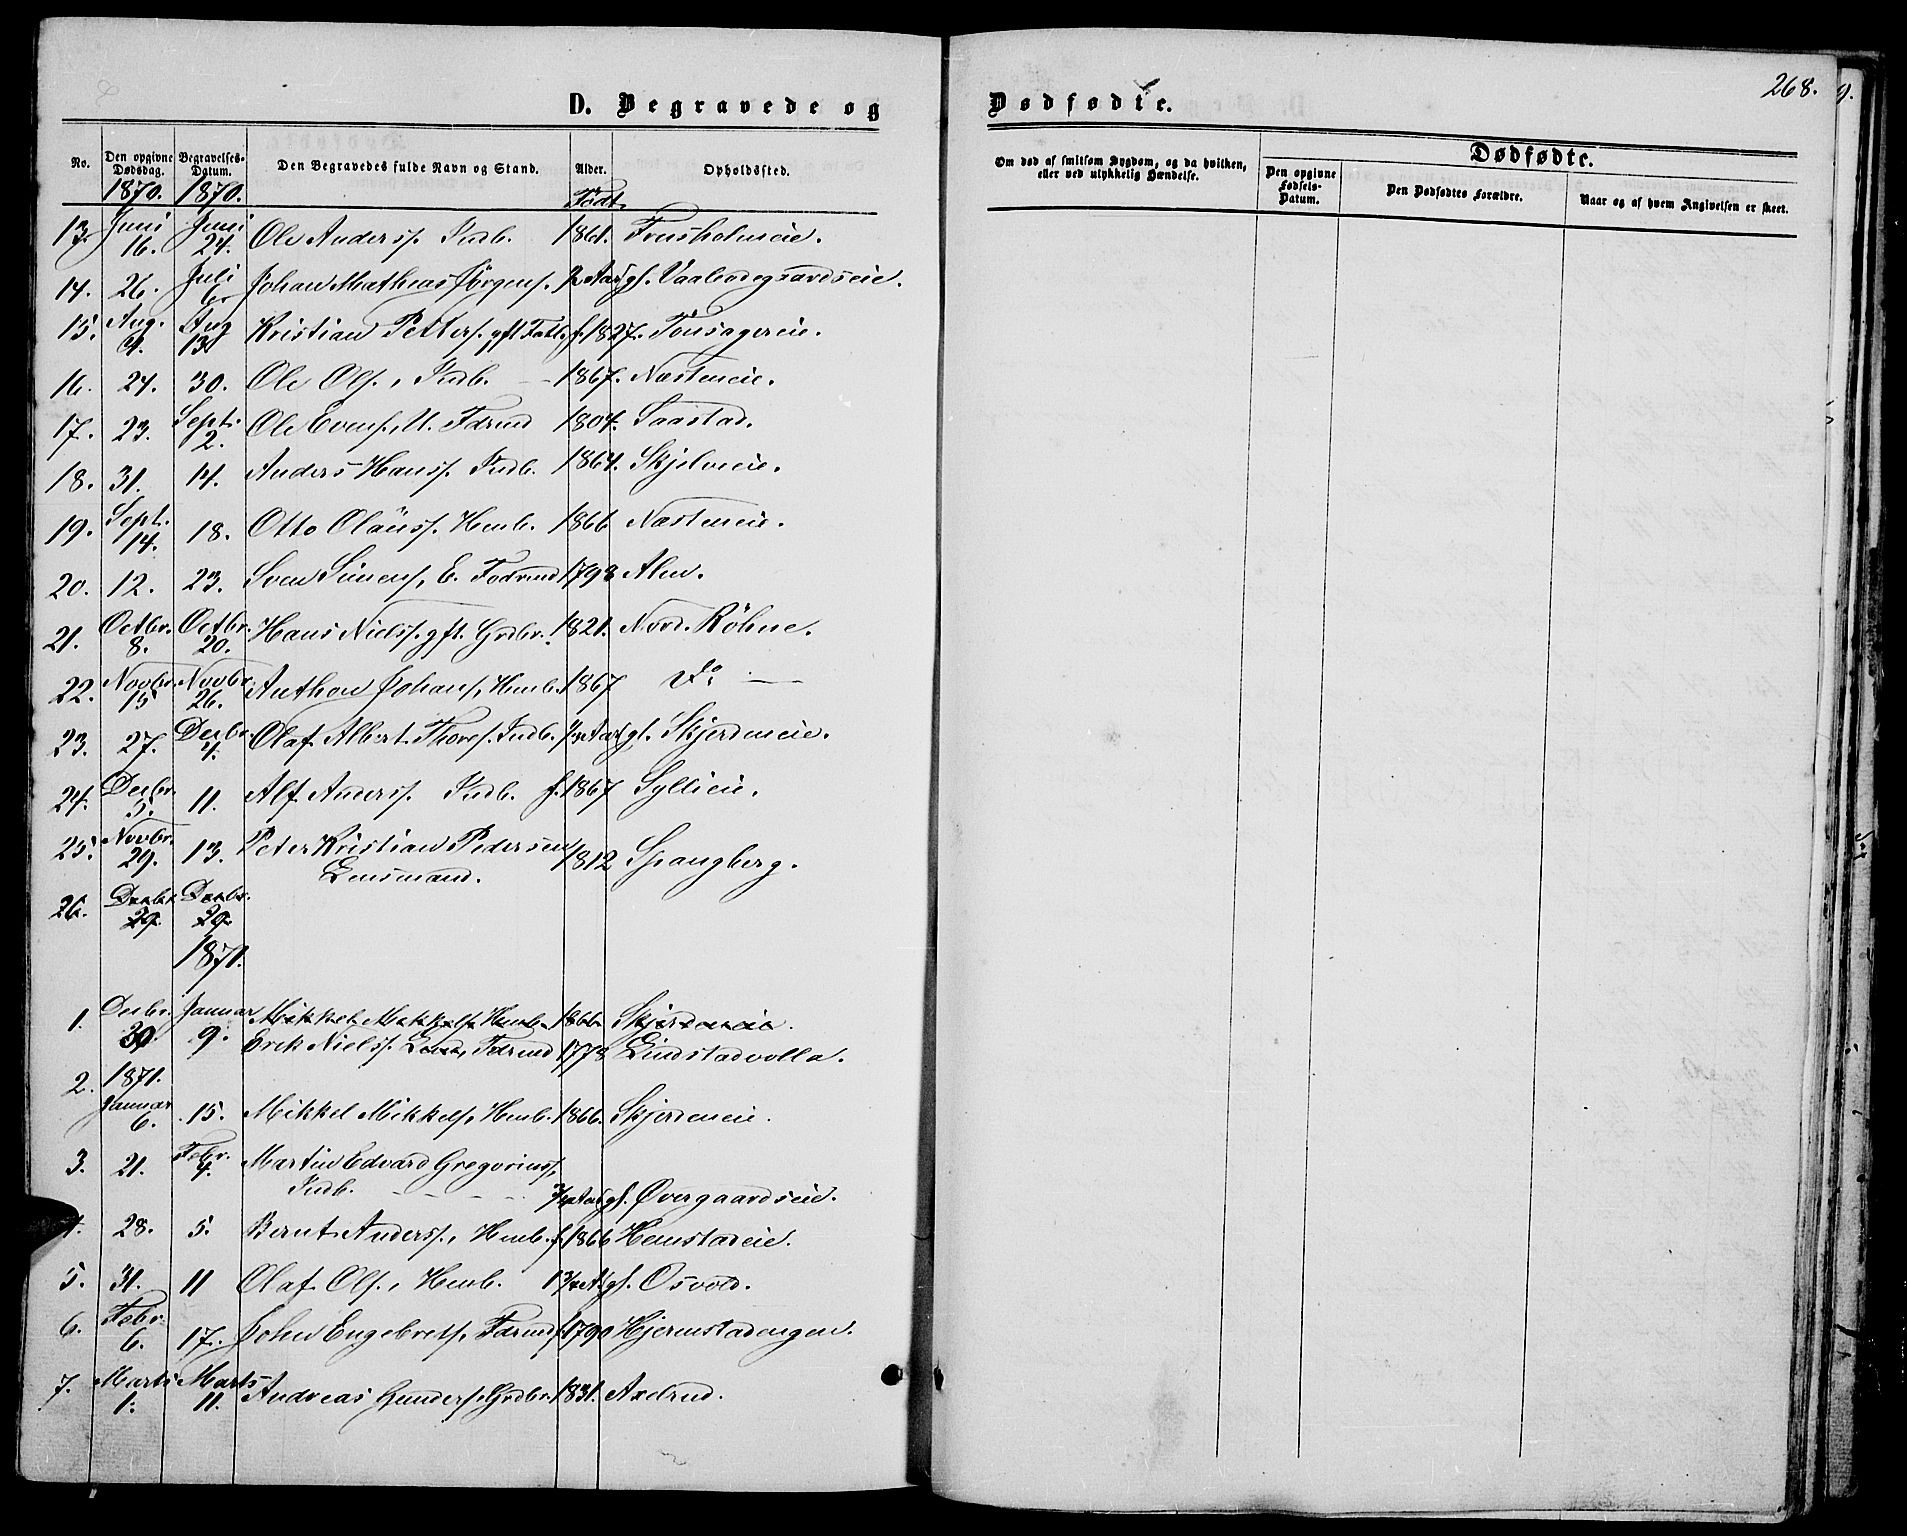 268.
D. Begravede og Dødfødte.
No. Den opgivne Dødsdag. Begravelses-Datum. Den Begravedes fulde Navn og Stand. Alder. Opholdssted.
Om død af smitsom Sygdom, og da hvilken, eller ved ulykkelig Hændelse.
Dødfødte.
Den opgivne Fødsels-Datum. Den Dødfødtes Forældre. Naar og af hvem Angivelsen er skeet.
1870. 1870. Født.
13. Juni 16. Juni 24. Ole Anders. Indb. 1861. Fonsholmeie.
14. 26. Juli 6. Johan Mathias Jörgens. Aar gl. Vaalendegaardseie.
15. Aug. 4. Aug 13. Kristian Petters. gft f. 1827. Tönsagereie.
16. 24. 30. Ole Ols., Indb. 1867. Næstemeie.
17. 23. Sept. 2. Ole Evens., U. Fdrmd 1804. Saastad.
18. 31. 14. Anders Hans. Indb. 1864. Skjelveie.
19. Sept. 14. 18. Otto Olaüss. Hmb. 1866 Næstemeie.
20. 12. 23. Sven Simens, E. Fodrmd 1798 Alm.
21. Octbr. 8. Octbr. 20. Hans Nielss. gft. Grdbr. 1821. Nord. Röhne.
22. Novbr. 15 Novbr. 26. Anthon Johans, Hmb. 1867 Do —
23. 27. Decbr. 4. Olaf Albert Thores. Indb. Aar gl. Skjerdemeie.
24. Decbr. 5. 11. Alf Anders. Indb. f. 1867 Syllieie.
25. Novbr. 29. 13. Peter Kristian Pedersen 1812 Spangberg.
Lensmand.
26. Decbr. 29. Decbr. 29.
1871.
1. Decbr. 30 Januar 9. Mikkel Mikkels. Hmb. 1866. Skjerdemeie.
Erik Nielss. Fdrmd 1778 Lindstadvolla.
2. 1871. Januar 6. 15. Mikkel Mikkels, Hmb. 1866. Skjerdemeie.
3. 21. Febr. 4. Martin Edvard Gregorius.,
Indb. Aar gl. Övergaardseie.
4. 28. 5. Bernt Anders., Hmb. f. 1866 Hemstadeie.
5. 31. 11 Olaf Ols., Hmb. 1 3/4 A. gl. Osvold.
6. Febr. 6. 17. John Engebrets, Fdrmd f. 1790 Hjermstadengen.
7. Marts 1. Marts 11. Andreas Gunders. Grdbr. 1831. Axelrud.